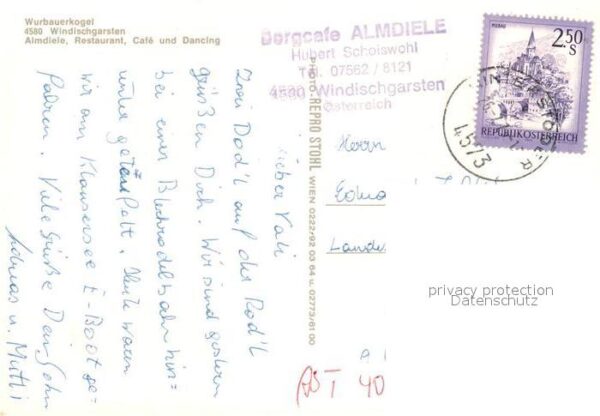 Wurbauerkogel
4580 Windischgarsten
Almdiele, Restaurant, Café und Dancing
Bergcafe ALMDIELE
Hubert Schoiswohl
Tel. 07562 / 8121
4580 Windischgarsten
Österreich
2.50 S
REPUBLIK ÖSTERREICH
4573
PHOTO REPRO STOHL WIEN 0222-92 03 64 u. 02773/61 00
Lieber Vati
Zwei Rod'l auf der Rod'l
grüßen Dich. Wir sind gestern
bei einer Blechrodelbahn hin=
unter Heute waren
wir am Klausersee E-Boot ge-
fahren. Viele Grüße Dein Sohn
u. Mutti
Herrn
privacy protection
Datenschutz